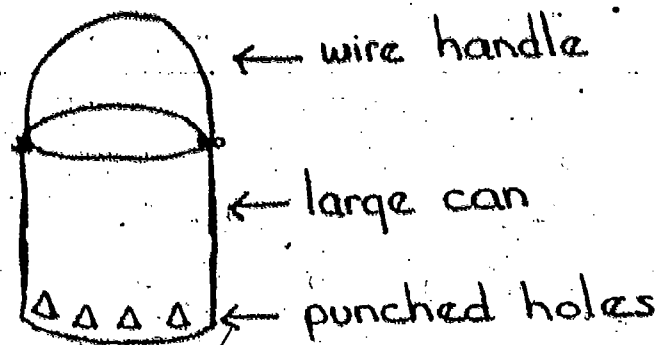 wire handle
large can
punched holes